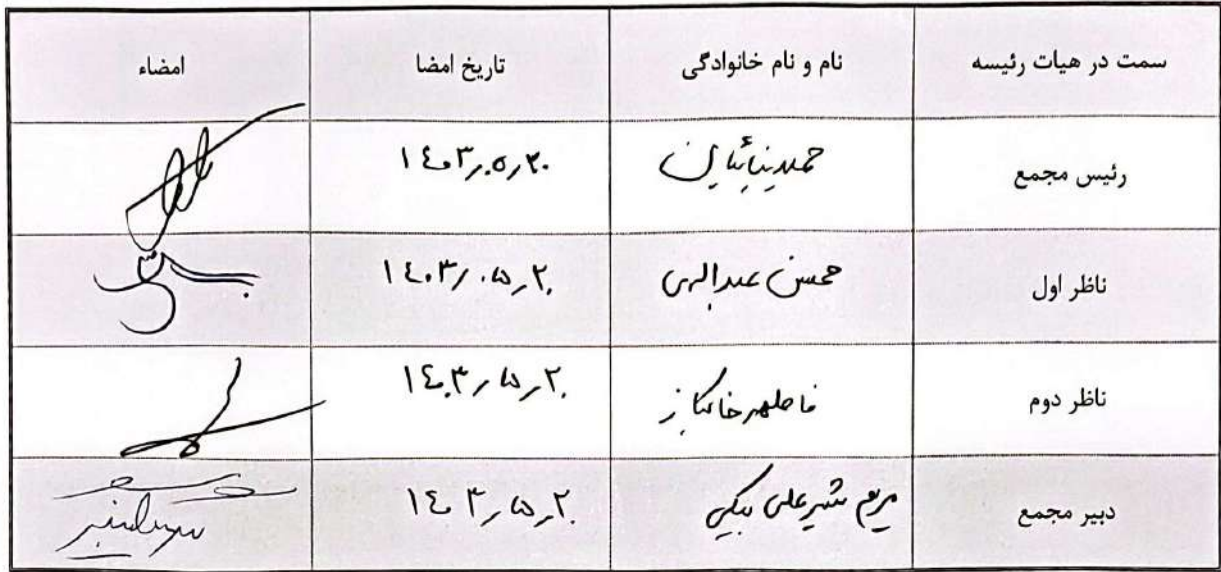 سمت در هیات رئیسه نام و نام خانوادگی تاریخ امضا امضاء
رئیس مجمع ۱۴۰۳٫۰۵٫۲۰
ناظر اول محسن عبدالهی ۱۴۰۳٫۰۵٫۲۰
ناظر دوم ۱۴۰۳٫۵٫۲۰
دبیر مجمع مریم شیرعلی بیگی ۱۴۰۳٫۵٫۲۰